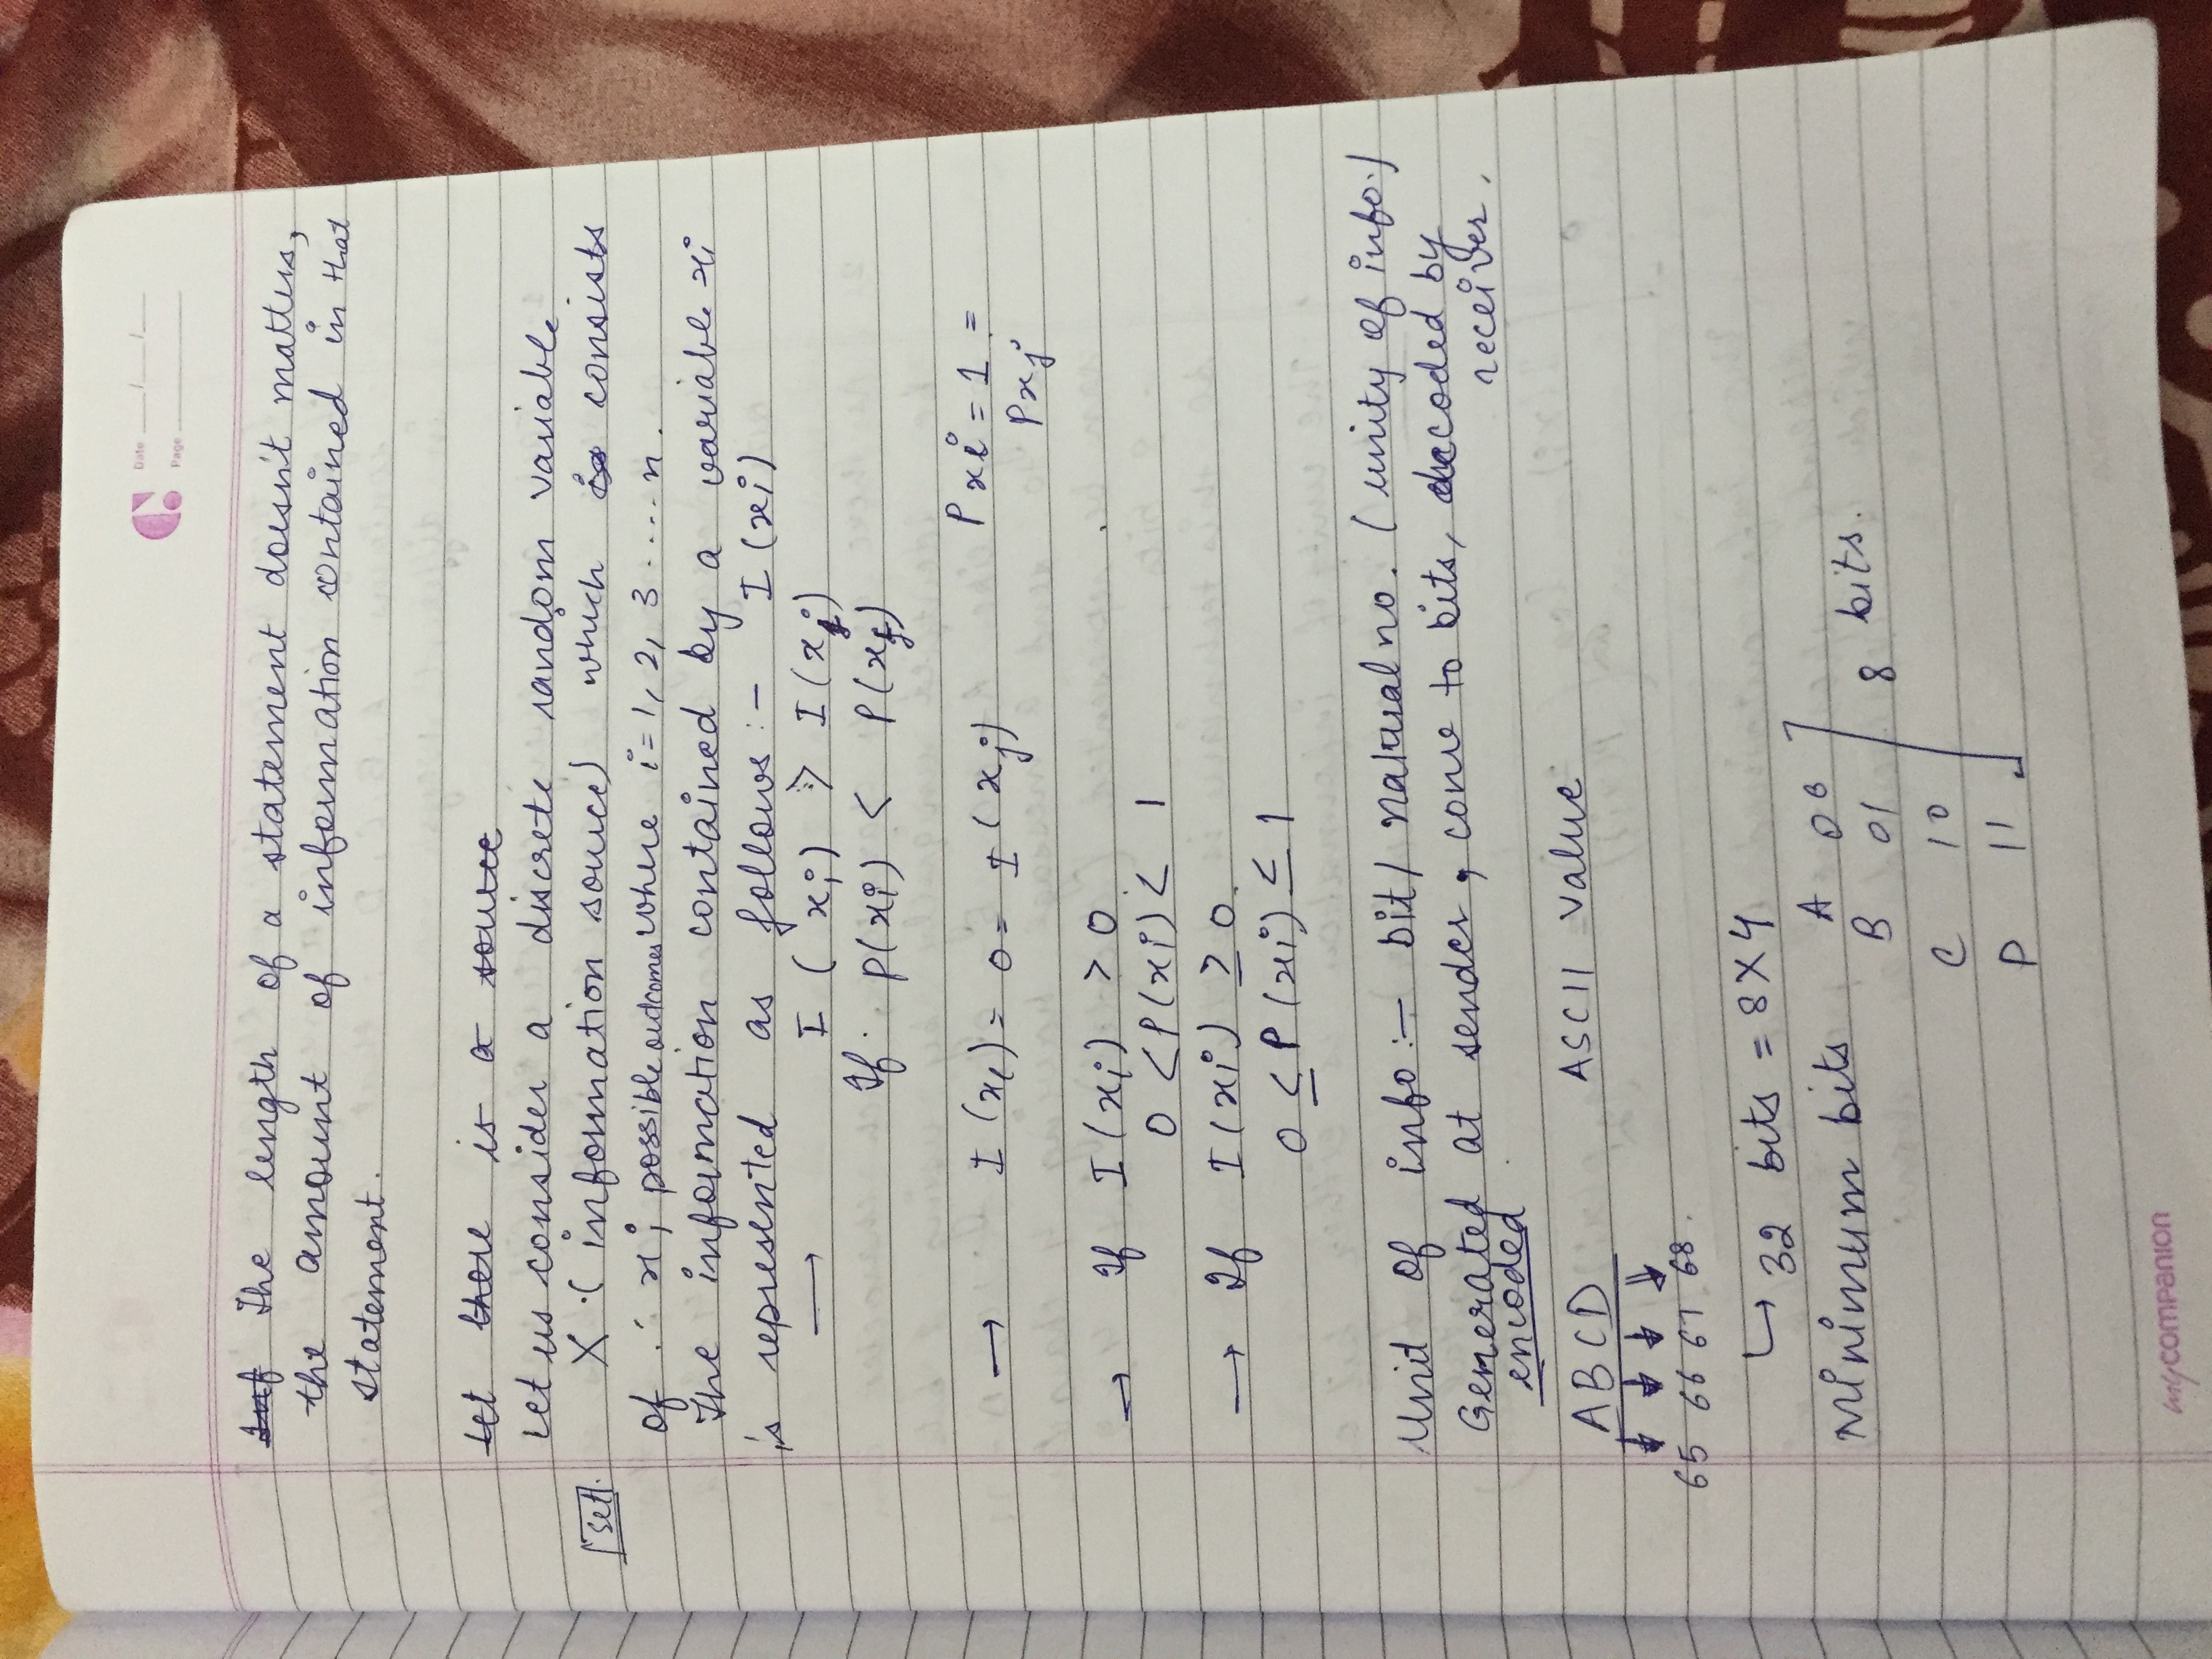 Date __/__/__
Page
Inf The length of a statement doesn't matters,
the amount of information contained in that
statement.
Let there is a source
Let us consider a discrete random variable
set. X (information source) which is consists
of xi possible outcomes where i=1, 2, 3 ....n.
The information contained by a variable xi
is represented as follows :- I(xi)
→ I (xi) > I(xj)
If P(xi) < P(xj)
→ I (xi) = 0 = I(xj) Pxi = 1 =
Pxj
→ If I(xi) > 0.
0 < P(xi) < 1
→ If I(xi) ≥ 0.
0 ≤ P(xi) ≤ 1
Unit of info :- bit/ Natural no. (unity of info.)
Generated at sender, conve to bits, decoded by
encoded receiver.
ABCD ASCII value
65 66 67 68.
↳ 32 bits = 8X4
Minimum bits A 00
B 01 8 bits.
C 10
D 11
mycompanion